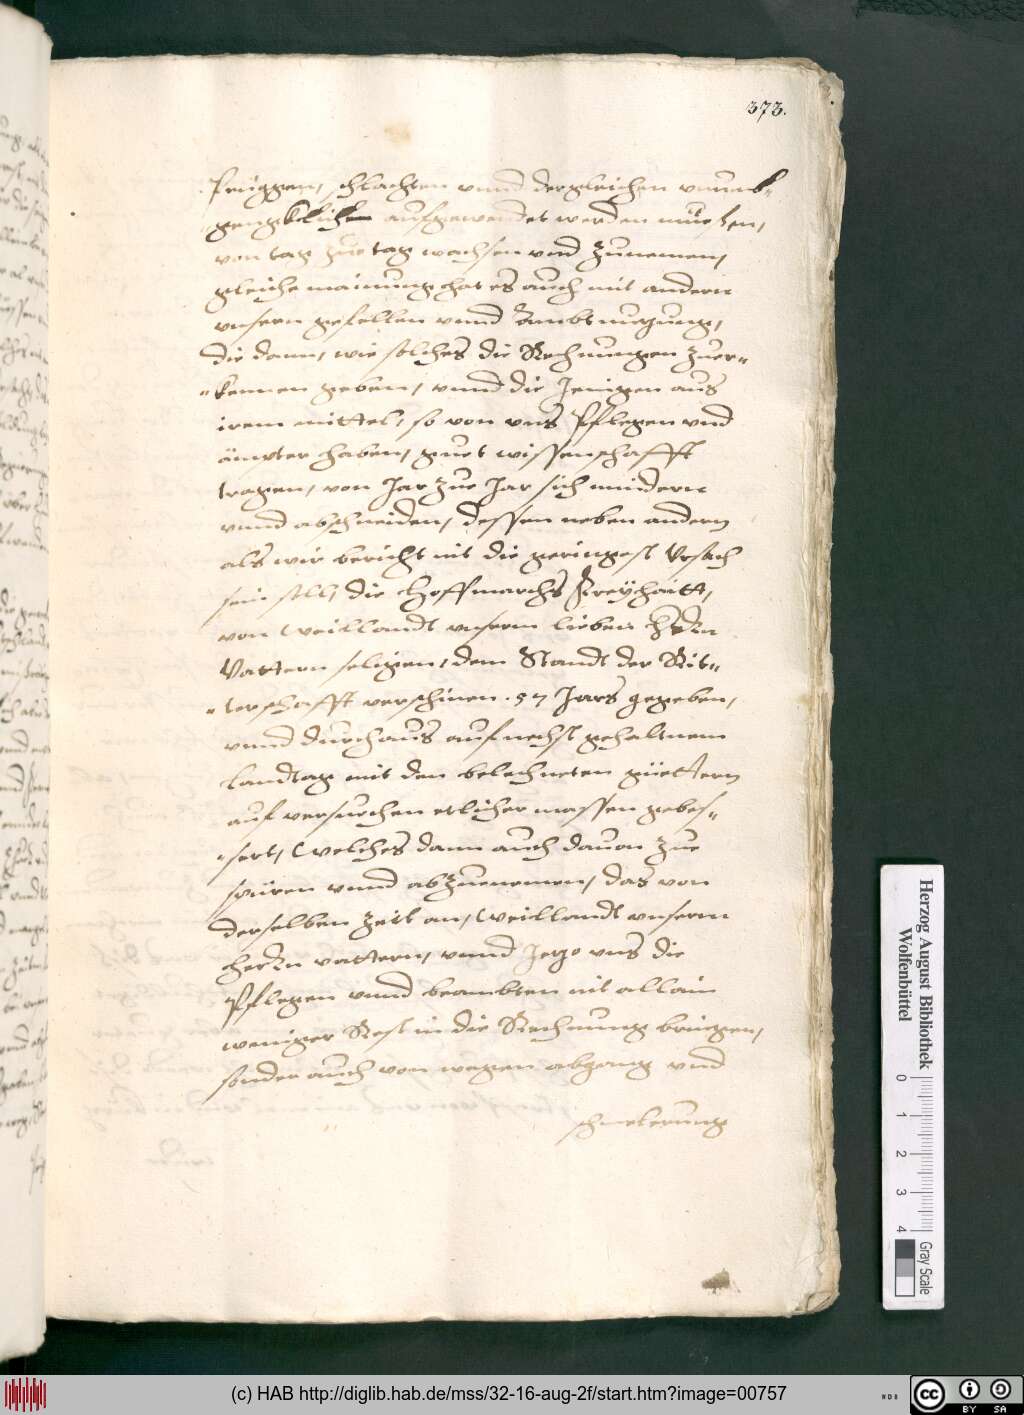 373.
Pruggen, schlachten vnnd dergleichen vnumb-
gengkhlichen aufgewendet werden müessen,
von tag zue tag wachsen vnd zunemen,
gleiche mainung hat es auch mit andern
vnsern gefellen vnnd Ambtnuzung,
die dann, wie solches die Rechnungen zuer-
-kennen geben, vnnd die Jenigen aus
irem mittel, so von vns Pflegen vnd
ämpter haben, guet wissenschafft
tragen, von Jar zue Jar sich mindern
vnnd abschneiden, dessen neben andern
als wir bericht nit die geringest Vrsach
sein soll, die Hoffmarchs Freyhaitt,
von Weillandt vnserm lieben Herrn
Vattern seligen, dem Standt der Rit-
-terschafft verschinen .57 Jars gegeben,
vnnd durchaus auf nechst gehaltnem
Landtag mit den belechneten güettern
auf versuechen etlicher massen gebes-
-sert, Welches dann auch dauon zue
spüren vnnd abzuenemen, das von
derselben Zeit an, Weillandt vnserm
Herrn vattern, vnnd Jezo vns die
Pflegen vnnd beambten nit allain
weniger Rest in die Rechnung bringen,
sonder auch von wegen abgang vnd
schmelerung
Herzog August Bibliothek
Wolfenbüttel
0 1 2 3 4
Gray Scale
(c) HAB http://diglib.hab.de/mss/32-16-aug-2f/start.htm?image=00757
WDB
cc BY SA